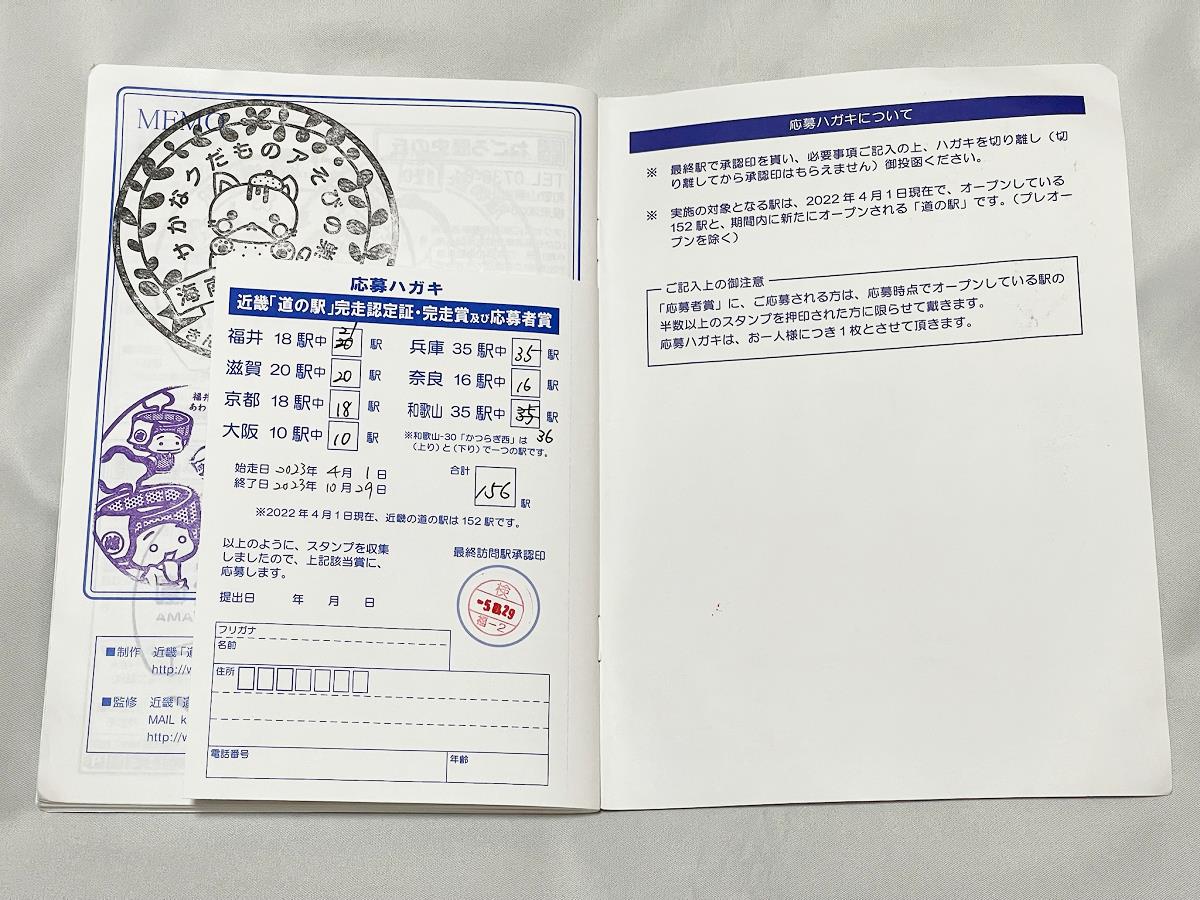 MEMO
さかなくだものアそびの
海南
福井
あわ
応募ハガキ
近畿「道の駅」完走認定証・完走賞及び応募者賞
福井 18駅中 21 駅
滋賀 20駅中 20 駅
京都 18駅中 18 駅
大阪 10駅中 10 駅
兵庫 35駅中 35 駅
奈良 16駅中 16 駅
和歌山 35駅中 35 駅
36
※和歌山-30「かつらぎ西」は
(上り)と(下り)で一つの駅です。
始走日 2023年 4月 1日
終了日 2023年 10月 29日
合計
156 駅
※2022年4月1日現在、近畿の道の駅は152駅です。
以上のように、スタンプを収集
しましたので、上記該当賞に、
応募します。
提出日 年 月 日
最終訪問駅承認印
検
福-2
フリガナ
名前
住所
電話番号
年齢
■制作 近畿「道
http://w
■監修 近畿「道
MAIL k
http://w
応募ハガキについて
※ 最終駅で承認印を貰い、必要事項ご記入の上、ハガキを切り離し(切
り離してから承認印はもらえません)御投函ください。
※ 実施の対象となる駅は、2022年4月1日現在で、オープンしている
152駅と、期間内に新たにオープンされる「道の駅」です。(プレオー
プンを除く)
ご記入上の御注意
「応募者賞」に、ご応募される方は、応募時点でオープンしている駅の
半数以上のスタンプを押印された方に限らせて戴きます。
応募ハガキは、お一人様につき1枚とさせて頂きます。